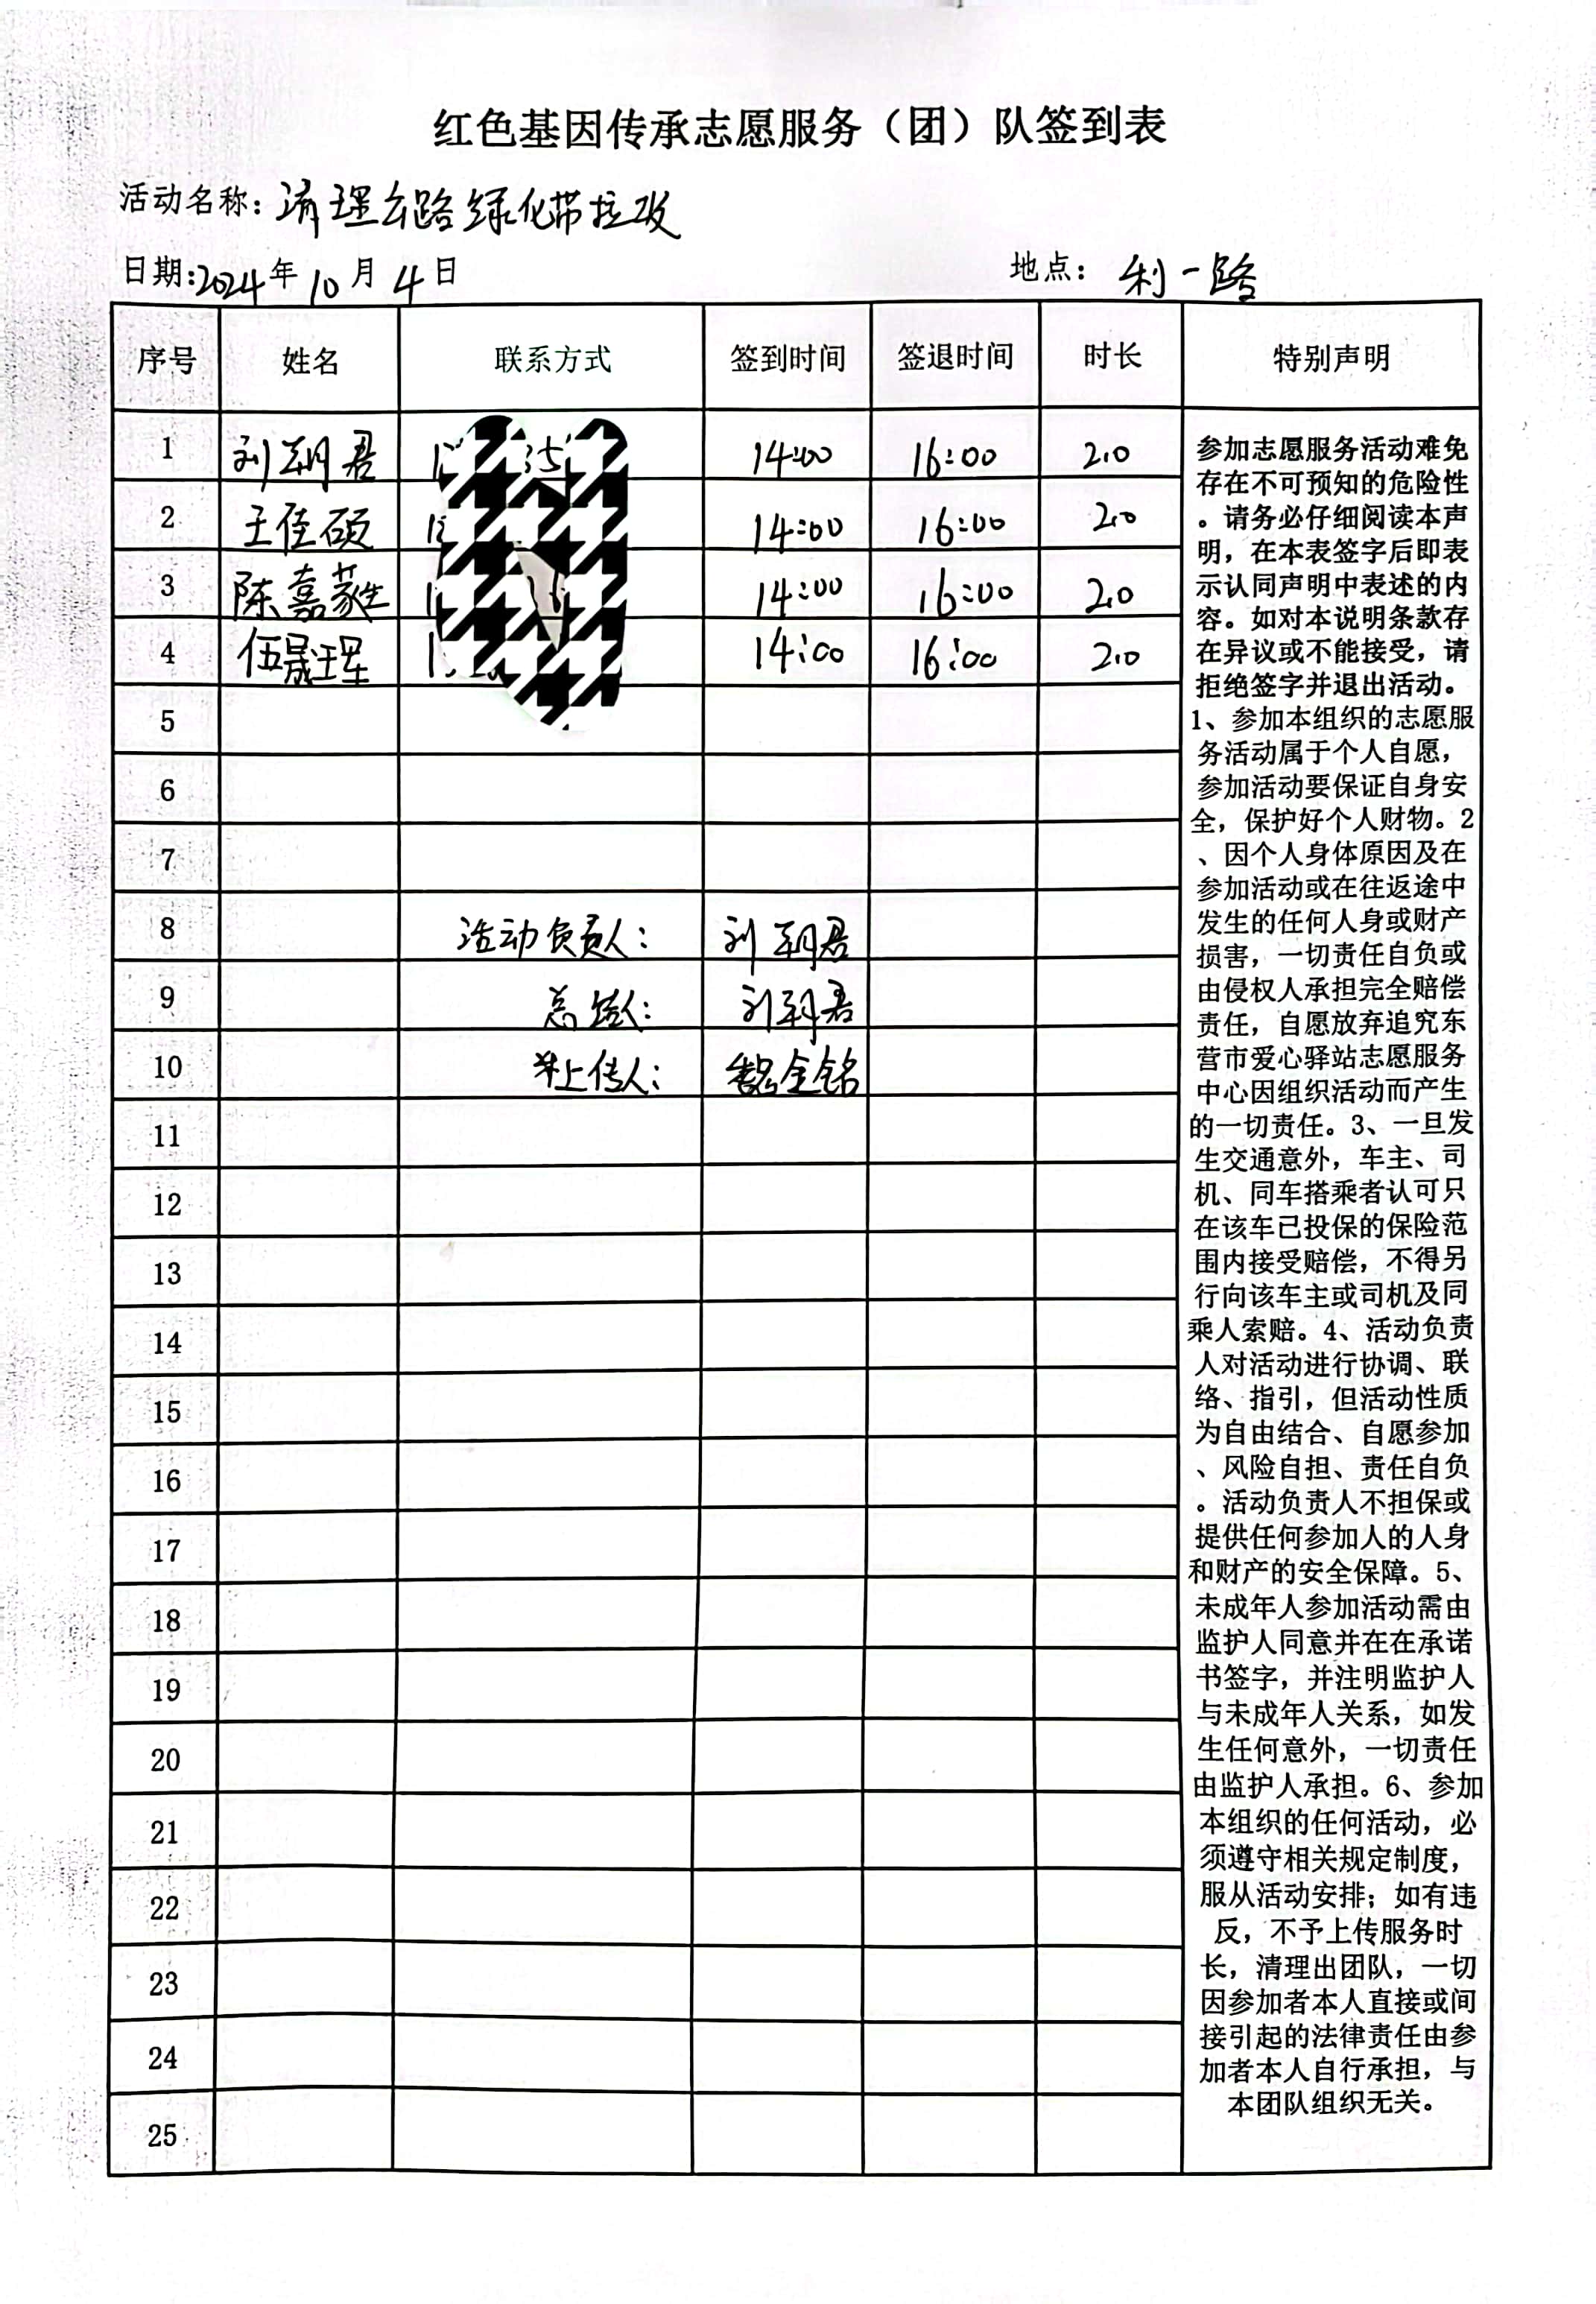 红色基因传承志愿服务（团）队签到表
活动名称：清理公路绿化带垃圾
日期:2024年10月4日 地点：利一路
序号 姓名 联系方式 签到时间 签退时间 时长 特别声明
1 刘朝君 14:00 16:00 2.0
2 王佳硕 14:00 16:00 2.0
3 陈嘉 14:00 16:00 2.0
4 伍晟 14:00 16:00 2.0
5
6
7
8 活动负责人： 刘朝君
9 总结人： 刘朝君
10 上传人： 魏全铭
11
12
13
14
15
16
17
18
19
20
21
22
23
24
25
参加志愿服务活动难免
存在不可预知的危险性
。请务必仔细阅读本声
明，在本表签字后即表
示认同声明中表述的内
容。如对本说明条款存
在异议或不能接受，请
拒绝签字并退出活动。
1、参加本组织的志愿服
务活动属于个人自愿，
参加活动要保证自身安
全，保护好个人财物。2
、因个人身体原因及在
参加活动或在往返途中
发生的任何人身或财产
损害，一切责任自负或
由侵权人承担完全赔偿
责任，自愿放弃追究东
营市爱心驿站志愿服务
中心因组织活动而产生
的一切责任。3、一旦发
生交通意外，车主、司
机、同车搭乘者认可只
在该车已投保的保险范
围内接受赔偿，不得另
行向该车主或司机及同
乘人索赔。4、活动负责
人对活动进行协调、联
络、指引，但活动性质
为自由结合、自愿参加
、风险自担、责任自负
。活动负责人不担保或
提供任何参加人的人身
和财产的安全保障。5、
未成年人参加活动需由
监护人同意并在在承诺
书签字，并注明监护人
与未成年人关系，如发
生任何意外，一切责任
由监护人承担。6、参加
本组织的任何活动，必
须遵守相关规定制度，
服从活动安排；如有违
反，不予上传服务时
长，清理出团队，一切
因参加者本人直接或间
接引起的法律责任由参
加者本人自行承担，与
本团队组织无关。